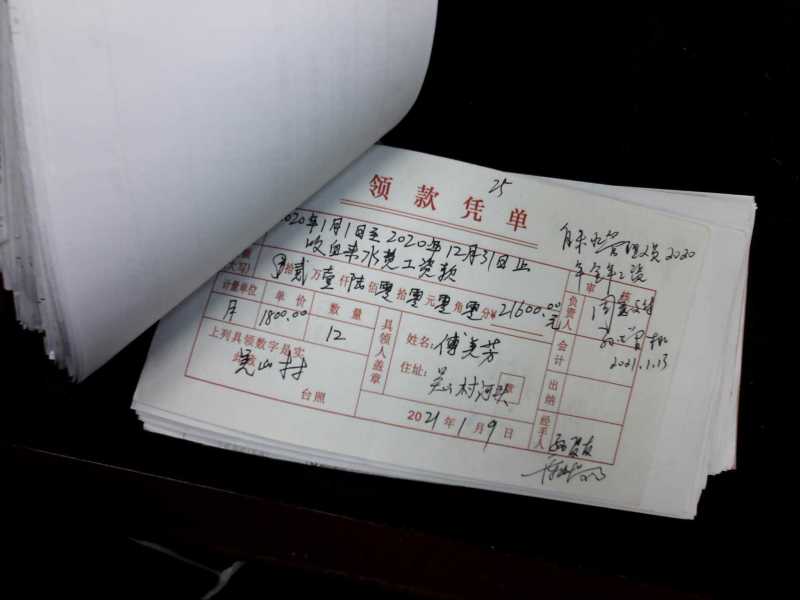 25
领款凭单
自来水管理人员2020
年全年工资
2020年1月1日至2020年12月31日止
收自来水费工资款
大写)
拾贰万壹仟陆佰零拾零元零角零分¥21600.00元
计量单位 单价 数量
月 1800.00 12
上列具领数字是实
此致
山村
台照
具领人盖章
姓名:傅美芳
住址:
村河
2021年1月9日
审核
负责人
同意支付
2021.1.13
会计
出纳
经手人